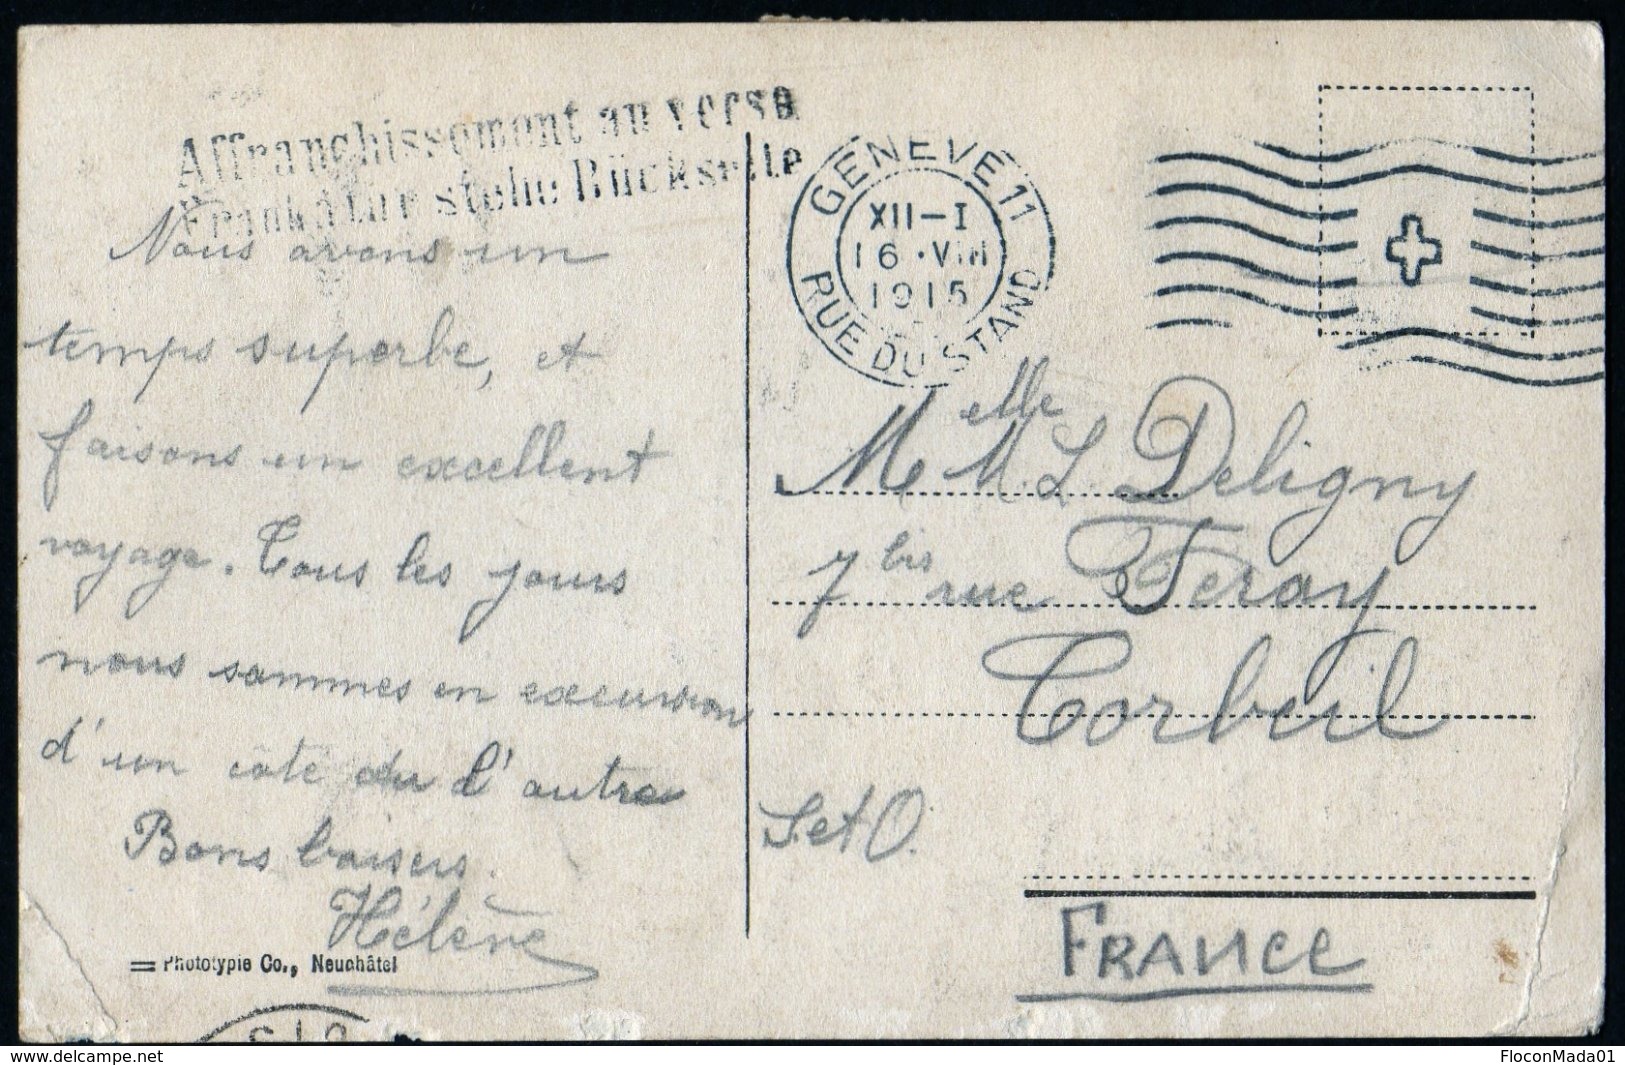 Affranchissement au verso
Frankatur siehe Rückseite
GENEVE 11
XII–I
16.VIII
1915
RUE DU STAND
Nous avons un
temps superbe, et
faisons un excellent
voyage. Tous les jours
nous sommes en excursion
d'un côté ou l'autre
Bons baisers.
Hélène
Phototypie Co., Neuchâtel
Melle M. L. Deligny
7 bis rue Feray
Corbeil
S. et O.
FRANCE
www.delcampe.net
FloconMada01